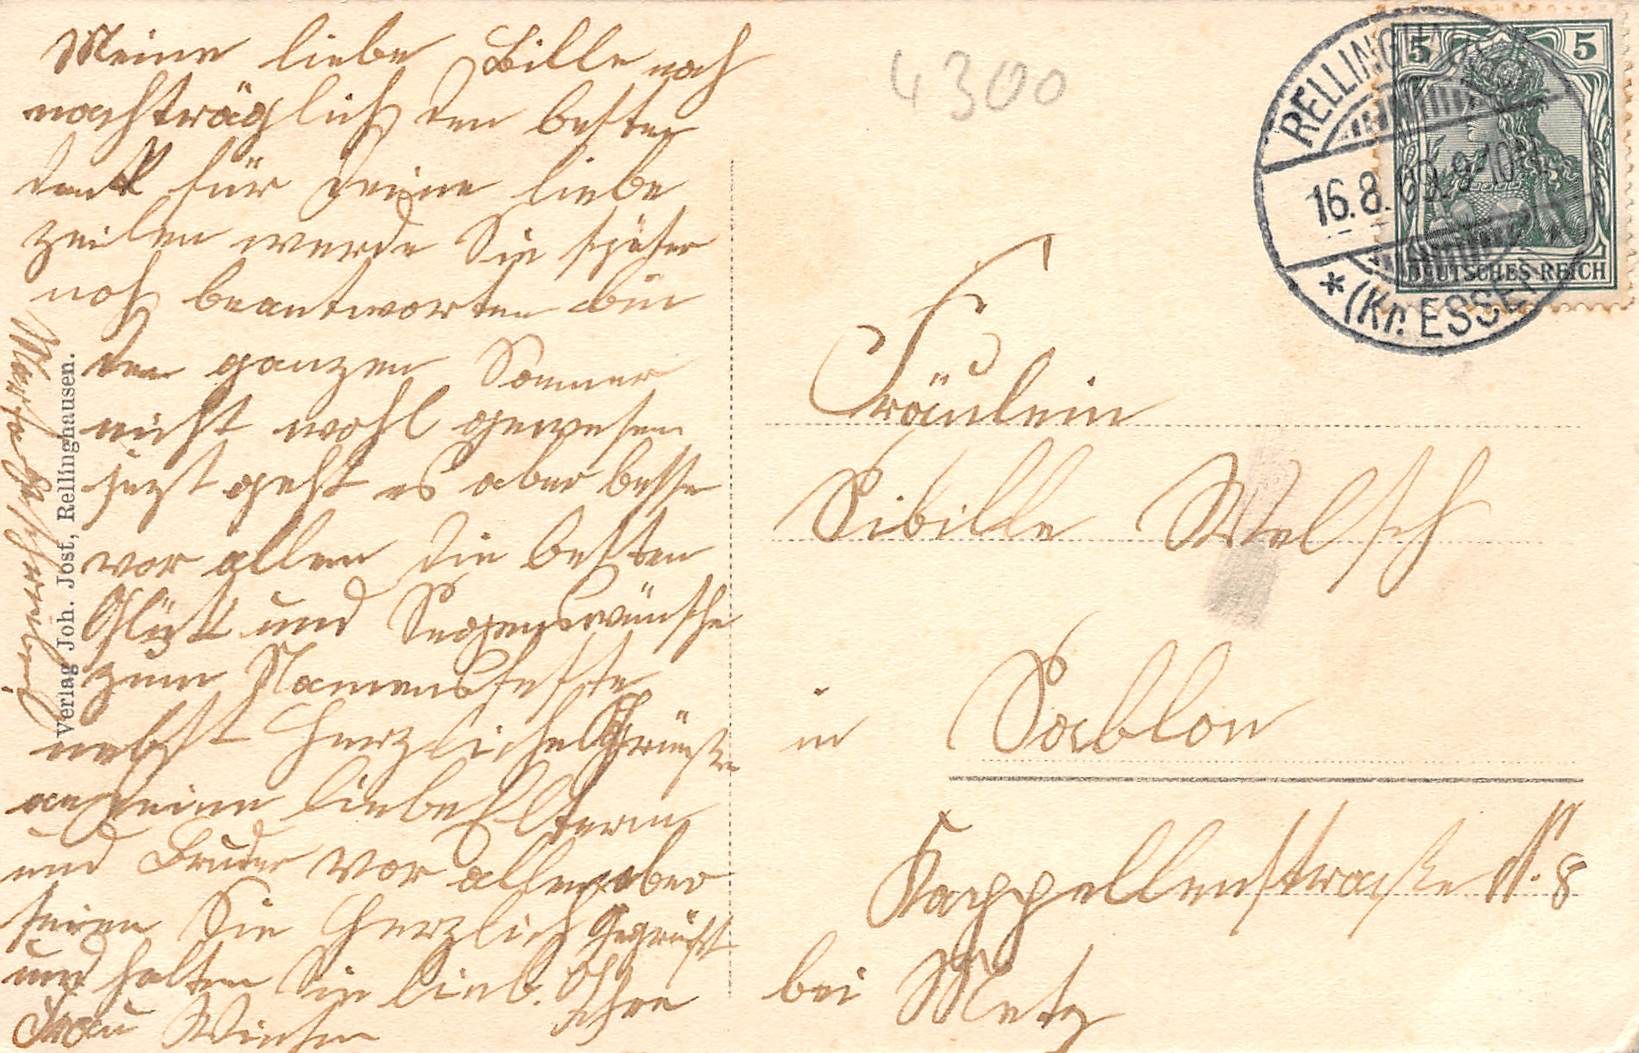 Meine liebe Bille noch
nachträglich den besten
dank für deine liebe
zeilen werde Sie später
noch beantworten bin
den ganzen Sommer
nicht wohl gewesen
jezt geht es aber besser
vor allem die besten
Glück und Segenswünsche
zum Namensfeste
nebst herzliche Grüße
an deine liebe Eltern
und Bruder vor allem aber
seien Sie herzlich Gegrüßt
und halten Sie lieb. Ihre
Frau
Verlag Joh. Jost, Rellinghausen.
4300
RELLINGHAUSEN
16.8.09. 9-10
* (Kr. ESSEN)
5 5
DEUTSCHES REICH
Fräulein
Sibille Welsch
in Sablon
Kappellenstraße N. 8
bei Metz